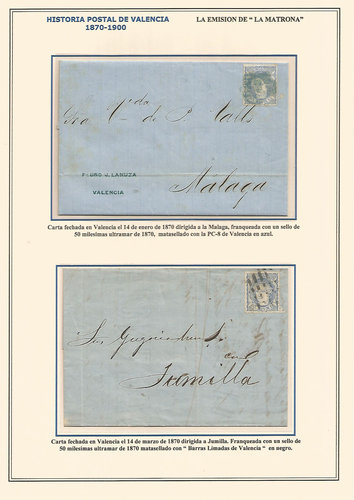 HISTORIA POSTAL DE VALENCIA
1870-1900
LA EMISION DE “ LA MATRONA”
Sra Vda de P. Valls
PEDRO J. LANUZA
VALENCIA
Málaga
Carta fechada en Valencia el 14 de enero de 1870 dirigida a la Malaga, franqueada con un sello de
50 milesimas ultramar de 1870, matasellado con la PC-8 de Valencia en azul.
en
Jumilla
Carta fechada en Valencia el 14 de marzo de 1870 dirigida a Jumilla. Franqueada con un sello de
50 milesimas ultramar de 1870 matasellado con “ Barras Limadas de Valencia “ en negro.